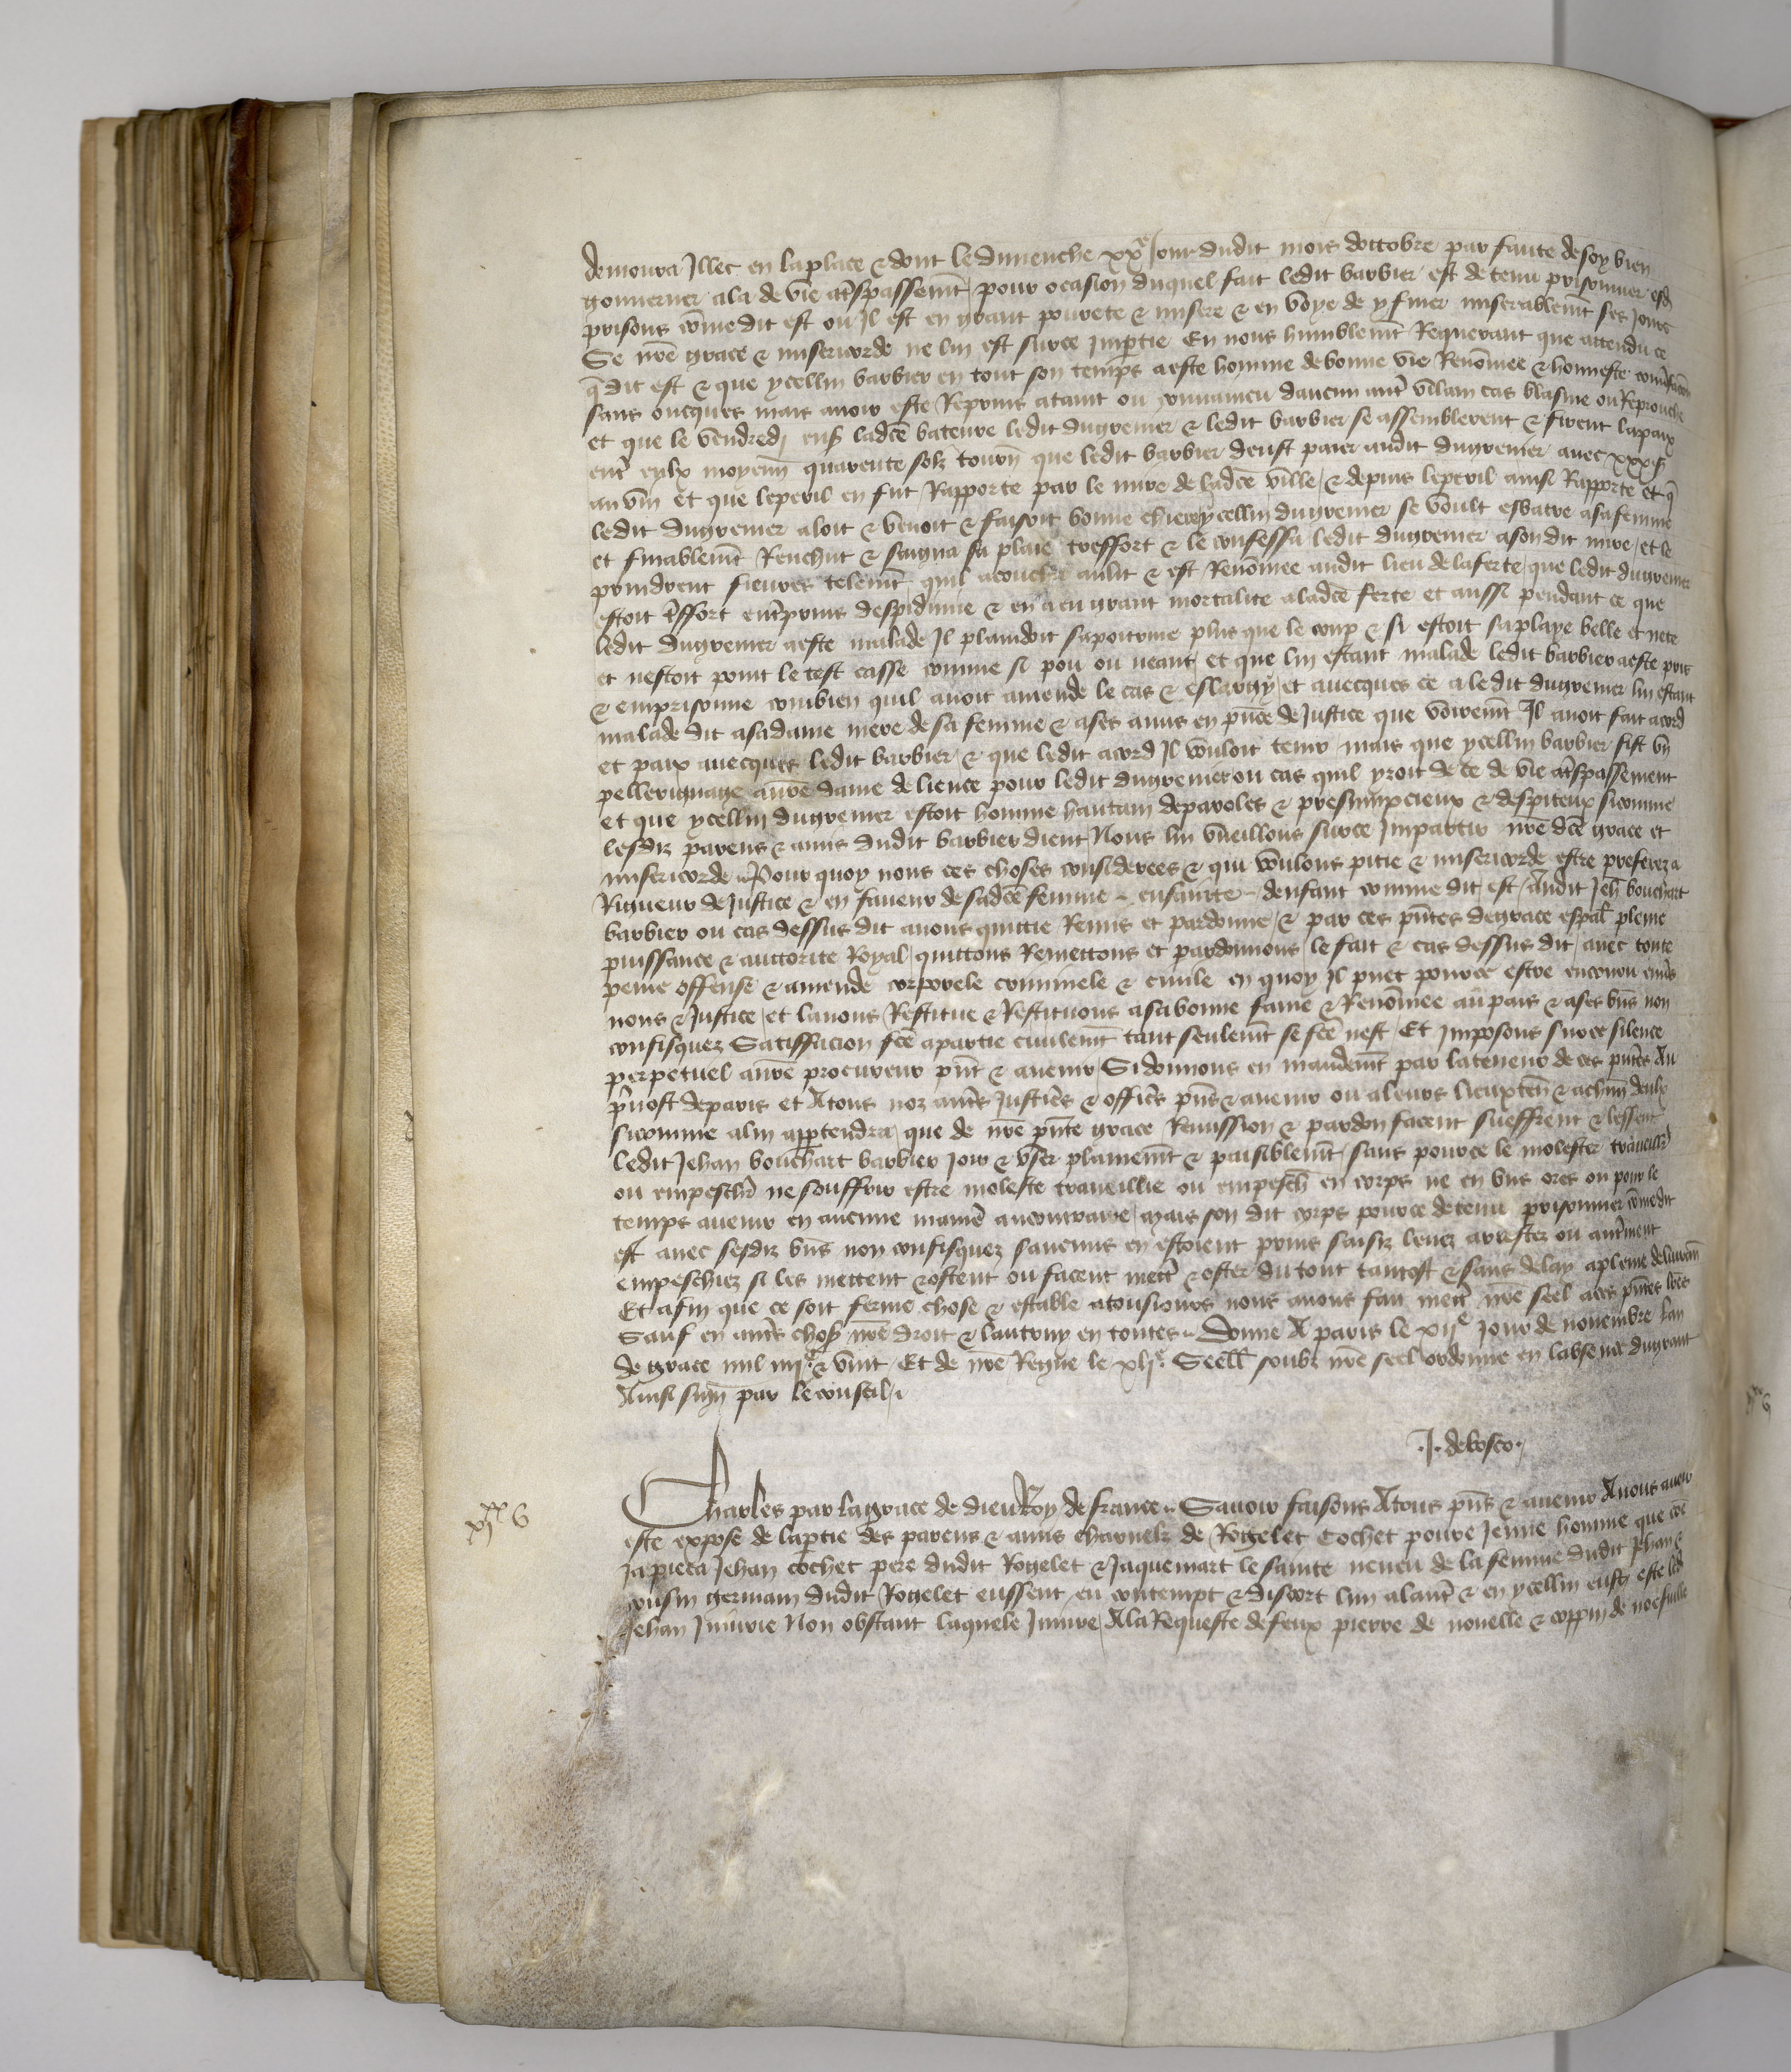 demoura Illec en la place & dont le dimenche xxe Jour dudit mois doctobre par faute de soy bien
gouverner ala de vie a tspassemt pour ocasion duquel fait ledit barbier est detenu prisonnier esd
prisons comme dit est ou Il est en grant povrete & misere & en voye de y finer miserablemt ses jours
Se nre grace & misericorde ne lui est surce impartie En nous humblemt Requerant que attendu ce
q dit est & que ycellui barbier en tout son temps a este homme de bonne vie Renommee & honneste
sans oncques mais avoir este Reprins ataint ou convaincu daucun autre vilain cas blasme ou Reprouche
et que le vendredi ens ladce bateure ledit dugrenier & ledit barbier se assemblerent & firent la paix
entr eulx moyenn quarente solz tourn que ledit barbier deust paier audit dugrenier avec xxx s
au vin et que le peril en fut Rapporte par le mire de ladce ville & depuis le peril ainsi Rapporte et q
ledit dugrenier aloit & venoit & faisoit bonne chiere ycellui dugrenier se voult esbatre a sa femme
et finablemt Renchut & saigna sa plaie tresfort & le confessa ledit dugrenier a son dit mire et le
prindrent fievres telemt quil acoucha au lit & est Renommee audit lieu de la ferte que ledit dugrenier
estoit tresfort entrprins despidimie & en a eu grant mortalite a ladce ferte et aussi pendant ce que
ledit dugrenier a este malade Il plaindoit sa poitrine plus que le coup & si estoit sa playe belle et nete
et nestoit point le test casse comme si pou ou neant et que lui estant malade ledit barbier a este pris
& emprisonne combien quil avoit amende le cas & eslargy et avecques ce a ledit dugrenier lui estant
malade dit a sa dame mere de sa femme & a ses amis en pnce de Justice que voiremt Il avoit fait acord
et paix avecques ledit barbier & que ledit acord Il vouloit tenir mais que ycellui barbier fist un
pellerignage a nre dame de lience pour ledit dugrenier ou cas quil yroit de ce de vie a tspassement
et que ycellui dugrenier estoit homme hautain de paroles & presumpcieux & despiteux si comme
lesdiz parens & amis dudit barbier dient Nous lui vueillons surce Impartir nre dce grace et
misericorde Pour quoy nous ces choses considerees & qui voulons pitie & misericorde estre preferez a
Rigueur de Justice & en faveur de sadce femme ensainte denfant comme dit est Audit Jeh bouchart
barbier ou cas dessus dit avons quittie Remis et pardonne & par ces pntes de grace espal pleine
puissance & auctorite Royal quittons Remettons et pardonnons le fait & cas dessus dit avec toute
peine offense & amende corporele criminele & civile en quoy Il puet pource estre encouru envs
nous & Justice et lavons Restitue & Restituons a sa bonne fame & Renommee au pais & a ses bns non
confisquez Satisfacion fce a partie civilemt tant seulemt se fce nest Et Imposons surce silence
perpetuel a nre procureur pnt & avenir Si donnons en mandemt par la teneur de ces pntes Au
prvost de paris et A tous noz autrs Justicrs & officrs pns & avenir ou a leurs lieuxten & a chun deulx
si comme a lui appartendra que de nre pnte grace Remission & pardon facent sueffrent & lessent
ledit Jehan bouchart barbier joir & user plainemt & paisiblemt sans pource le molester travaillr
ou empeschr ne souffrir estre moleste travaillie ou empesch en corps ne en bns ores ou pour le
temps avenir en aucune manie au contraire mais son dit corps pource detenu prisonnier comme dit
est avec sesdiz bns non confisquez saucuns en estoient prins saisiz levez arrestez ou autrment
empeschiez si les mettent & ostent ou facent mettr & oster du tout tantost & sans delay a pleine delivran
Et afin que ce soit ferme chose & estable a tousiours nous avons fait mettr nre seel a ces pntes lres
Sauf en autrs chos nre droit & lautruy en toutes Donne A paris le xije jour de novembre lan
de grace mil iiijc & vint Et de nre Regne le xlje Seell soubz nre seel ordonne en labsence du grant
Ainsi sign par le conseil
J. de bosco
xjxx 6
Charles par la grace de dieu Roy de france Savoir faisons A tous pns & avenir A nous avoir
este expose de la partie des parens & amis charnelz de Rogelet Cochet povre Jeune homme que coe
Ja pieca Jehan Cochet pere dudit Rogelet & Jaquemart le sainte neveu de la femme dudit Jehan &
cousin germain dudit Rogelet eussent eu contempt & discort lun a lautr & en ycellui eust este led
Jehan Injurie Non obstant laquele Injure A la Requeste de feux pierre de nouelle & coppin de